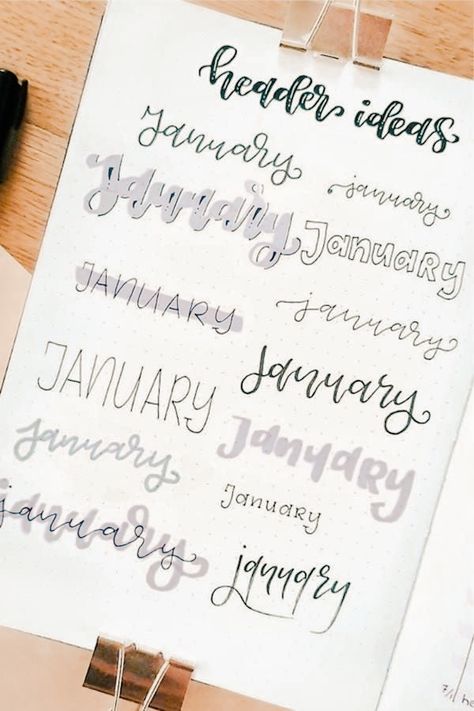 header ideas
January
january
January
January
JANUARY
january
JANUARY
january
january
January
January
january
january